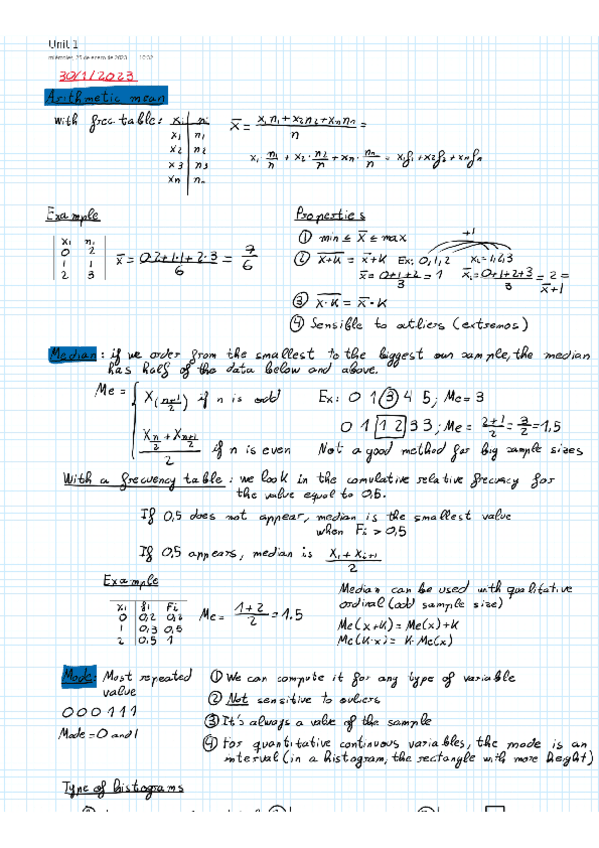 Unit 1
miércoles, 25 de enero de 2023 10:32
30/1/2023
Arithmetic mean
With frec. table:
xi ni
x1 n1
x2 n2
x3 n3
xn nn
x̄ = (x1n1 + x2n2 + xnnn)/n =
x1 · n1/n + x2 · n2/n + xn · nn/n = x1f1 + x2f2 + xnfn
Example
xi ni
0 2
1 1
2 3
x̄ = (0·2+1·1+2·3)/6 = 7/6
Properties
① min ≤ x̄ ≤ max
② x+K = x̄+K Ex: 0,1,2 xi=1,2,3
+1
x̄ = (0+1+2)/3 = 1 x̄ = (0+1+2+3)/3 = 2 = x̄+1
③ x·K = x̄·K
④ Sensible to outliers (extremos)
Median: if we order from the smallest to the biggest our sample, the median
has half of the data below and above.
Me = { X((n+1)/2) if n is odd
(Xn/2 + X(n+1)/2)/2 if n is even
Ex: 0 1 ③ 4 5; Me= 3
0 1 1 2 3 3; Me = (2+1)/2 = 3/2 = 1,5
Not a good method for big sample sizes
With a frecuency table: we look in the comulative relative frecuency for
the value equal to 0,5.
If 0,5 does not appear, median is the smallest value
when Fi > 0,5
If 0,5 appears, median is (Xi + Xi+1)/2
Example
xi fi Fi
0 0,2 0,2
1 0,3 0,5
2 0,5 1
Me = (1+2)/2 = 1.5
Median can be used with qualitative
ordinal (odd sample size)
Me(x+K) = Me(x)+K
Me(K·x) = K·Me(x)
Mode: Most repeated
value
0 0 0 1 1 1
Mode = 0 and 1
① We can compute it for any type of variable
② Not sensitive to outliers
③ It's always a value of the sample
④ For quantitative continuous variables, the mode is an
interval (in a histogram, the rectangle with more height)
Type of histograms